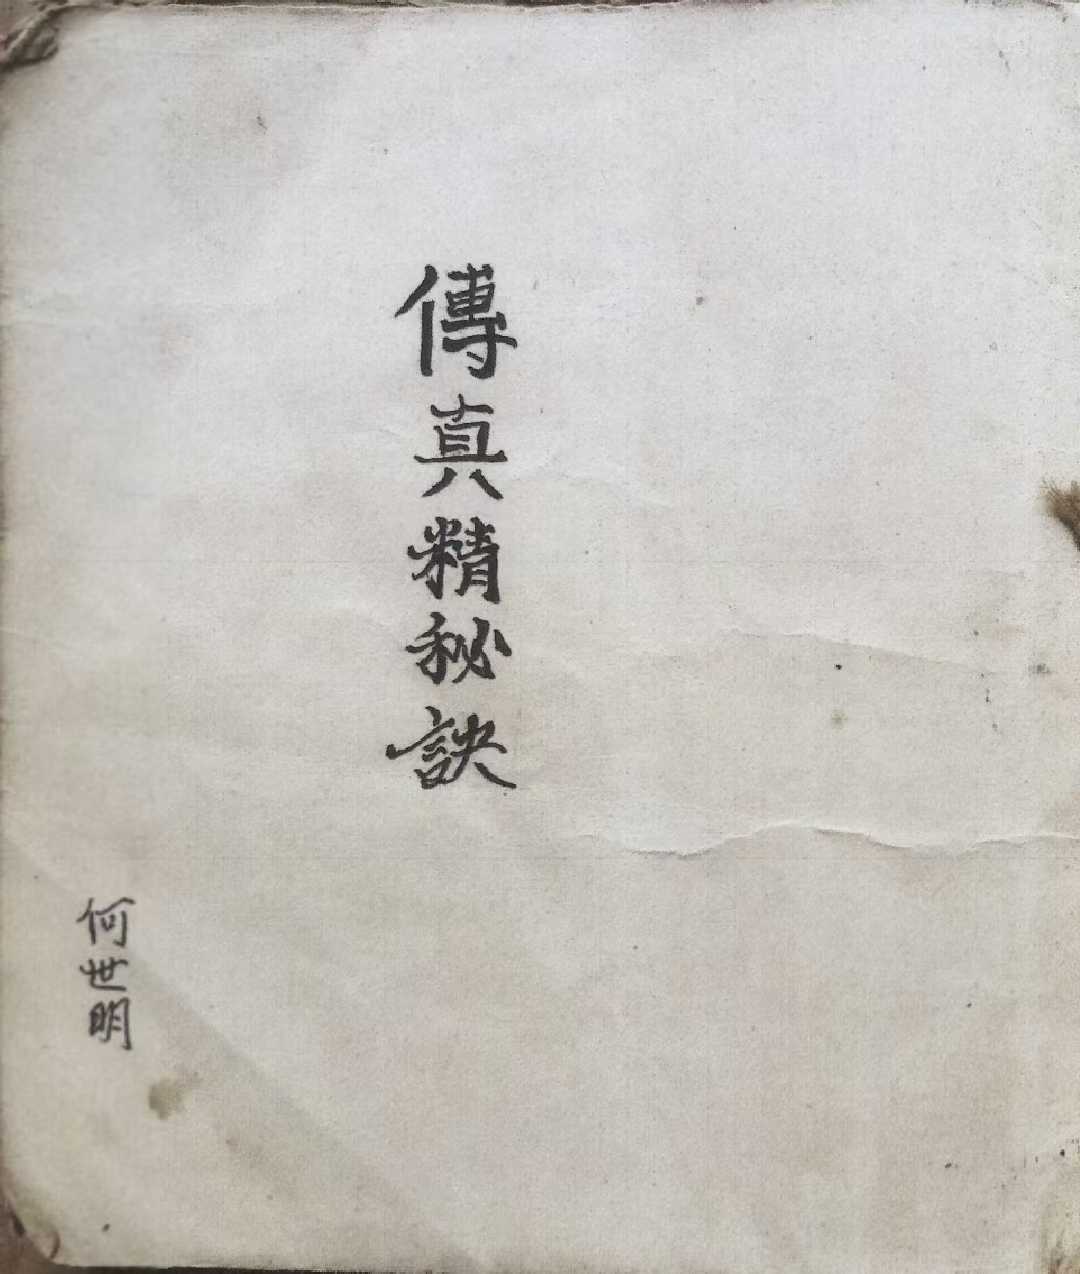 傳真精秘訣
何世明